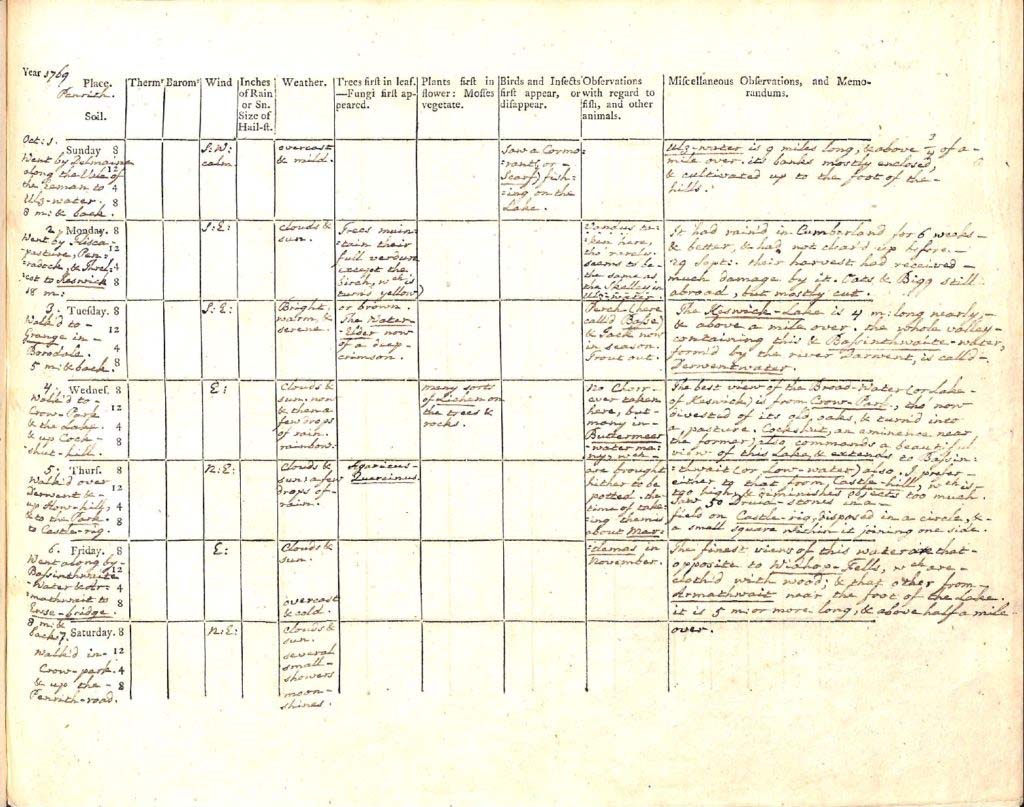 Year 1769
Place. Thermr Baromr Wind Inches of Rain or Sn. Size of Hail-st. Weather. Trees first in leaf.—Fungi first appeared. Plants first in flower: Mosses vegetate. Birds and Insects first appear, or disappear. Observations with regard to fish, and other animals. Miscellaneous Observations, and Memorandums.
Penrith.
Soil.
Oct: 1.
Sunday 8
Went by Delmaine
12
along the Vale of
the Eeman to 4
Ulz-water. 8
8 m: & back.
S: W:
calm
overcast
& mild.
Saw a Cormo
rant (or
Scarf) fish-
:ing on the
Lake.
Ulz-water is 9 miles long, & above 3/4 of a-
mile over. its banks mostly enclosed,
& cultivated up to the foot of the-
hills.
2. Monday. 8
Went by
12
-pasture, Pen-
:radock, & Threl- 4
cot to Keswick 8
18 m:
S: E:
clouds &
sun.
Trees main-
tain their
full verdure
except the
birah, wch is
turn'd yellow)
or brown.
The Water-
Elder now
of a deep-
crimson.
Vandus ta-
:ken here,
tho' rarely.
seems to be
the same as
the Skelley in
Ulz-water.
It had rain'd in Cumberland for 6 weeks-
& better, & had not clear'd up before-
29 Sept: their harvest had received-
much damage by it. Oats & Bigg still
abroad, but mostly cut.
3. Tuesday. 8
Walk'd to-
12
Grange in-
Borodale. 4
5 m: & back. 8
S: E:
Bright
warm, &
serene.
Perch (here
called Base)
& Gaile now
in season.
Trout out.
The Keswick-Lake is 4 m: long nearly,-
& above a mile over. the whole valley-
containing this & Bassinthwaite-water,
form'd by the river Darwent, is call'd-
Derwentwater.
4. Wednes. 8
Walk'd to-
Crow-Park 12
& the Lake. 4
& up Cock- 8
shut-hill.
E:
Clouds &
sun. now
& then a
few drops
of rain.
rainbow.
many sorts
of Lichen on
the trees &
rocks.
No Charr-
ever taken
here, but-
many in-
Buttermeer
-water ma-
:ny, wch
are brought
hither to be
potted. the
time of tak-
:ing them is
about Mar-
:tlemas in
November.
The best view of the Broad-Water (or Lake
of Keswick) is from Crow-Park, tho now
divested of its old oaks, & turn'd into
a pasture. Cockshut, an eminence near
the former, also commands a beautiful
view of this Lake, & extends to Bassin:
:thwait (or Low-water) also. I prefer-
either to that from Castle-hill, wch is-
too high, & diminishes objects too much.
5. Thurs. 8
Walk'd over
12
Derwent &-
up How-hill, 4
& to the Park. 8
to Castle-rig.
N: E:
Clouds &
sun; a few
drops of-
rain.
Agaricus-
Quercinus.
Saw 50 Druid-stones in a-
field on Castle-rig, disposed in a circle, &-
a small square within it joining one side.
6. Friday. 8
Went along by-
Bassinthwaite 12
-Water & Ar- 4
:mathwait to
Ewse-bridge. 8
8 m: &
back.
E:
Clouds &
sun.
overcast
& cold.
The finest views of this water are that-
opposite to Wi Fells, wch are-
cloth'd with wood; & that other from-
Armathwait near the foot of the Lake.
it is 5 m: or more long, & above half a mile
over.
7. Saturday. 8
Walk'd in-
12
Crow-park. 4
& up the-
8
Penrith-road.
N: E:
clouds &
sun.
several
small-
showers
moon-
shines.